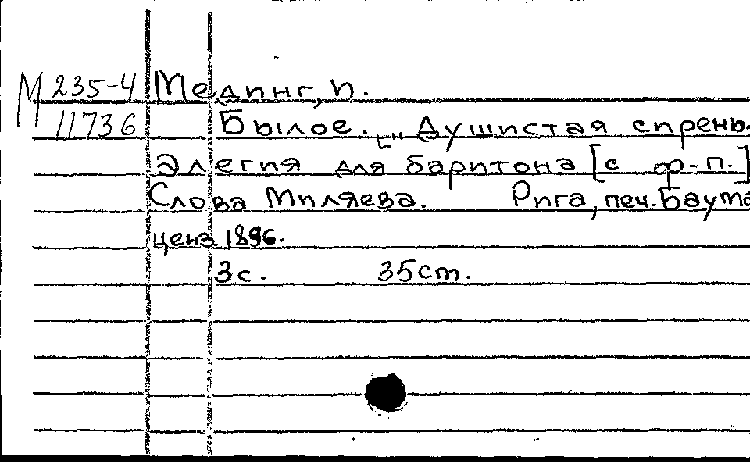 М 235-4 Мединг, И.
11736 Былое. ["Душистая сирень.
Элегия для баритона [с ф-п.]
Слова Миляева. Рига, печ. Баума
ценз. 1896.
3с. 35 см.